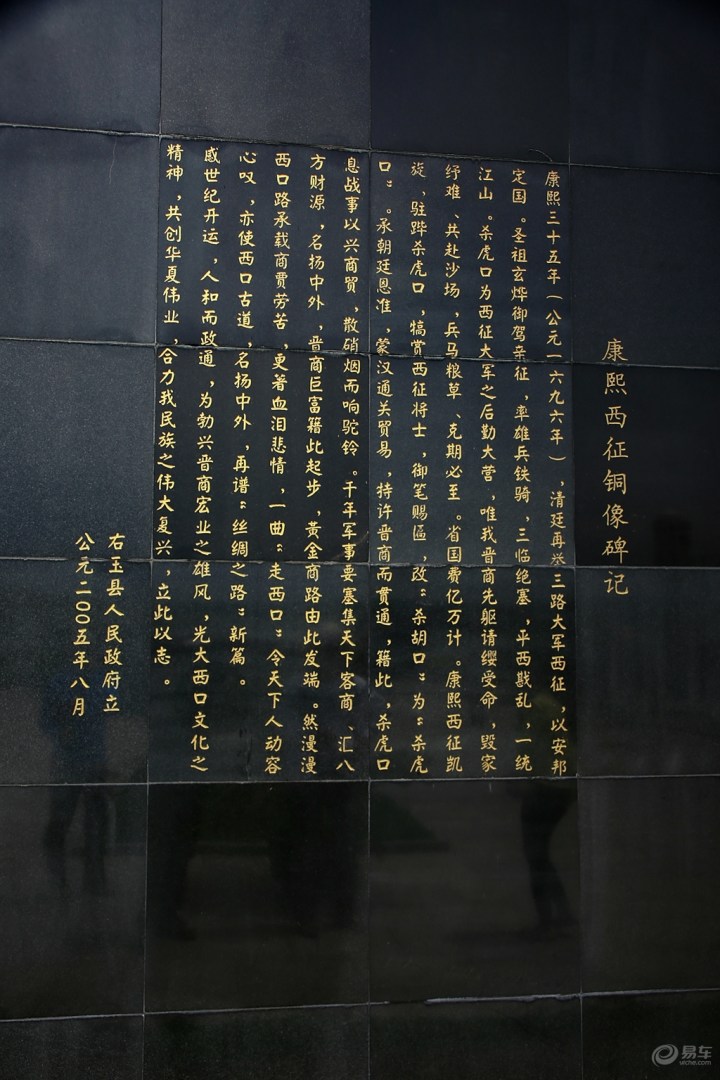 康熙西征铜像碑记
康熙三十五年（公元一六九六年），清廷再举三路大军西征，以安邦
定国。圣祖玄烨御驾亲征，率雄兵铁骑，三临绝塞，平西戡乱，一统
江山。杀虎口为西征大军之后勤大营，唯我晋商先躯请缨受命，毁家
纾难、共赴沙场，兵马粮草、克期必至。省国费亿万计。康熙西征凯
旋、驻跸杀虎口，犒赏西征将士，御笔赐匾，改“杀胡口”为“杀虎
口”。承朝廷恩准，蒙汉通关贸易，持许晋商而贯通，籍此，杀虎口
息战事以兴商贸，散硝烟而响驼铃。千年军事要塞集天下客商、汇八
方财源，名扬中外，晋商巨富籍此起步，黄金商路由此发端。然漫漫
西口路承载商贾劳苦，更著血泪悲情，一曲“走西口”令天下人动容
心叹，亦使西口古道，名扬中外，再谱“丝绸之路”新篇。
盛世纪开运，人和而政通，为勃兴晋商宏业之雄风，光大西口文化之
精神，共创华夏伟业，合力我民族之伟大复兴，立此以志。
右玉县人民政府立
公元二00五年八月
易车
yiche.com